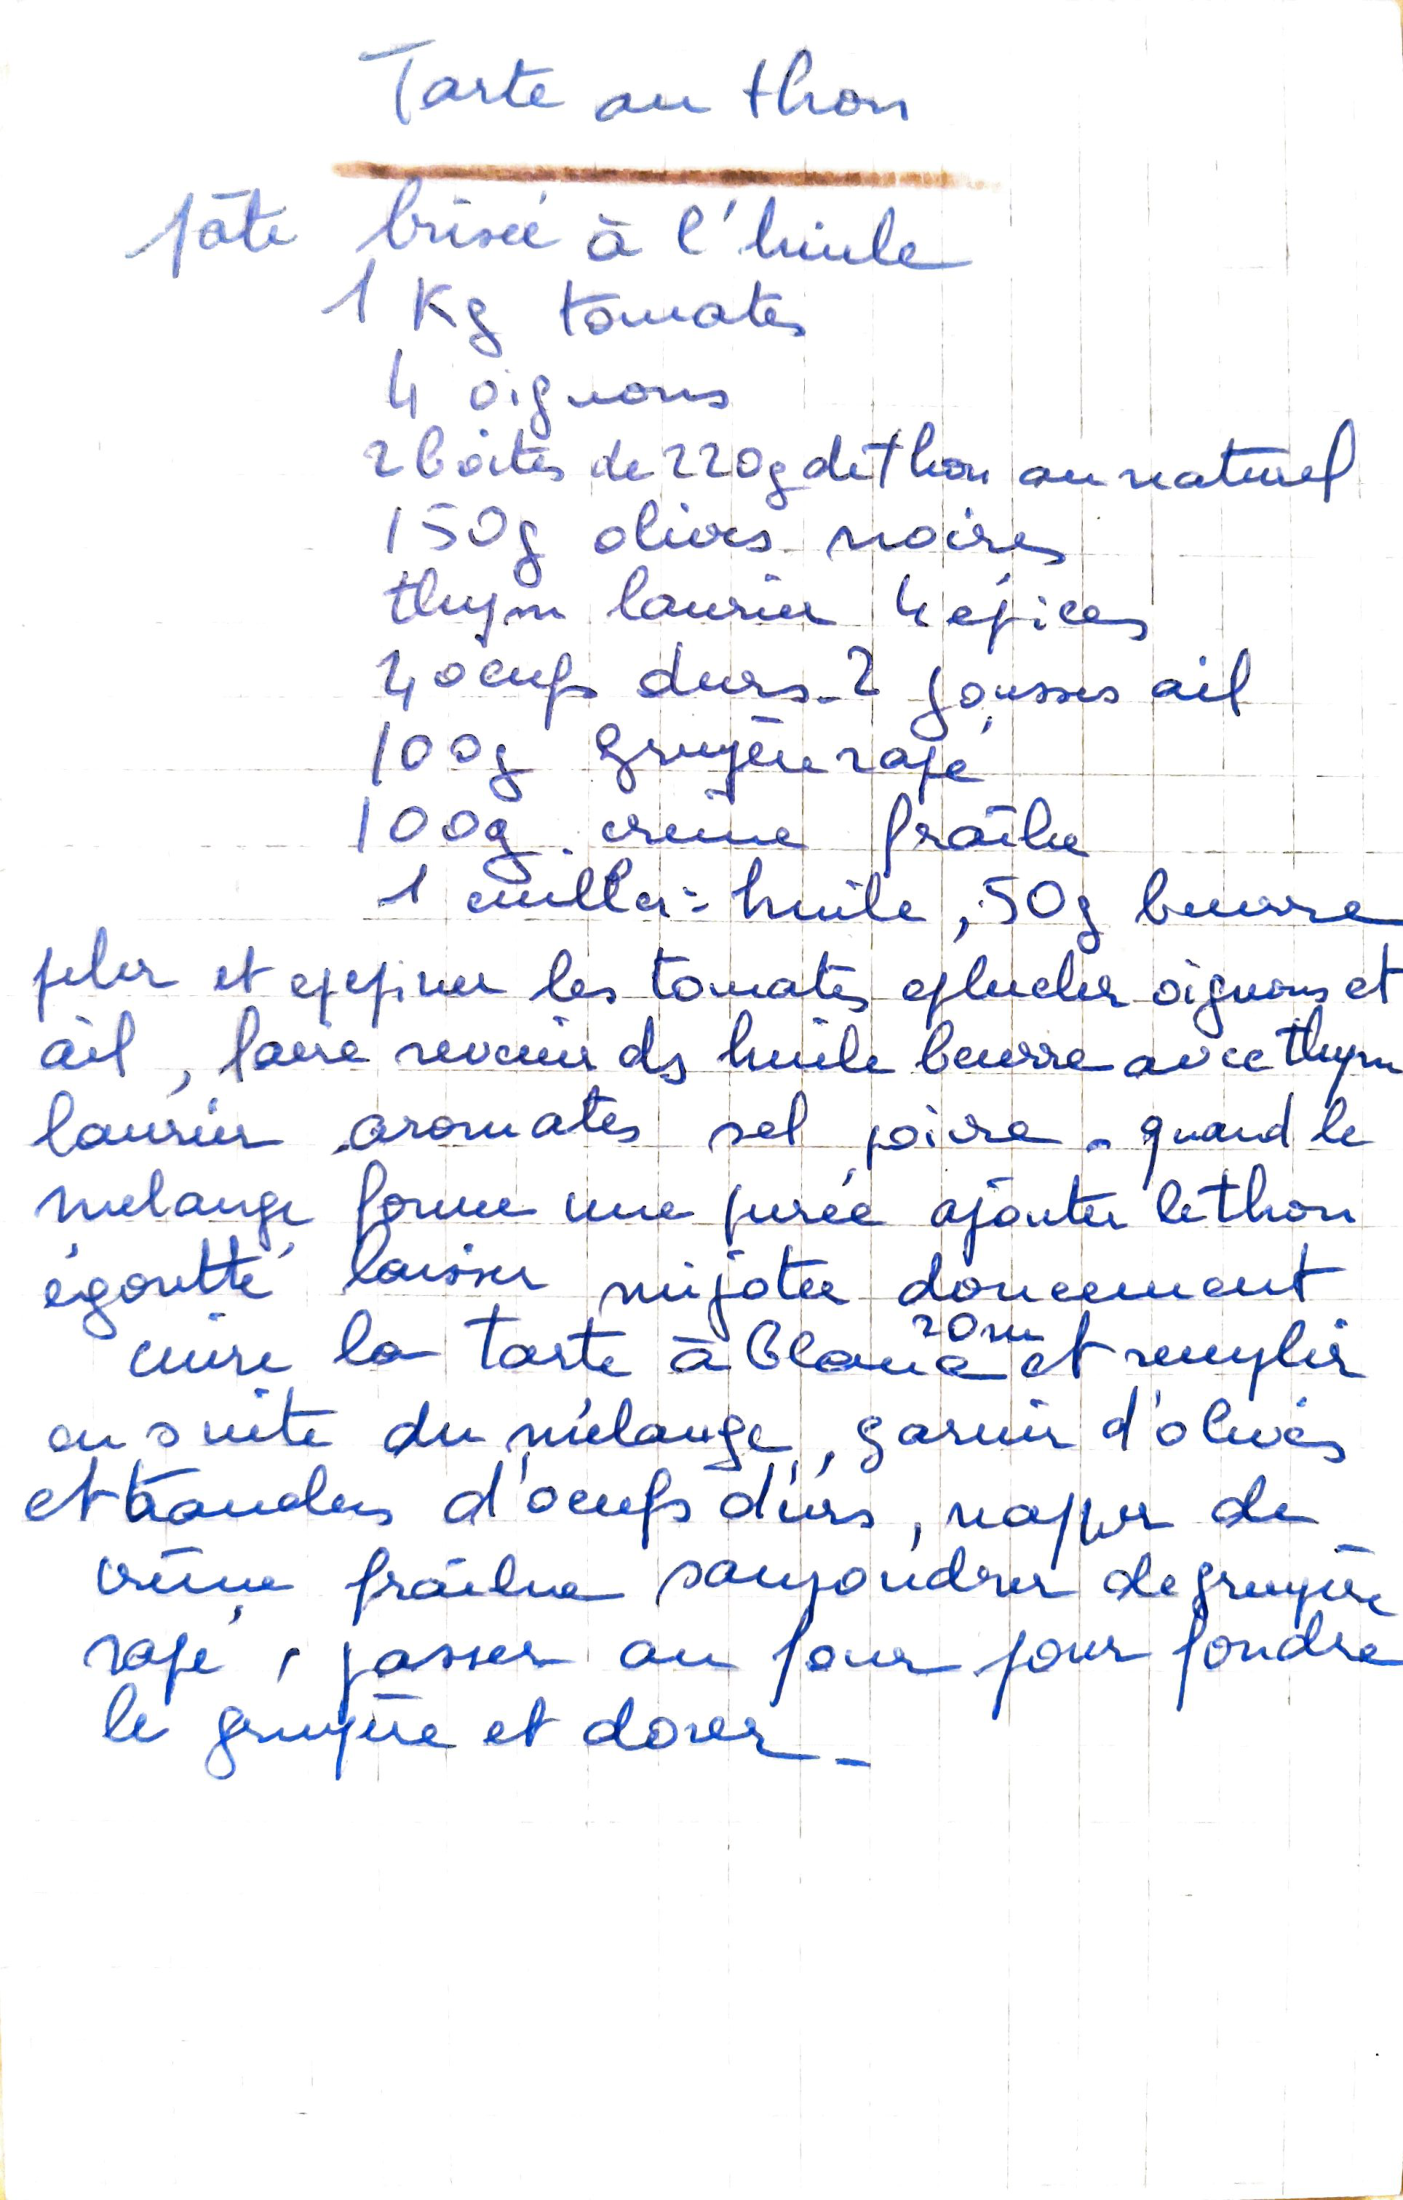 Tarte au thon
pâte brisée à l'huile
1 Kg tomates
4 oignons
2 boites de 220g de thon au naturel
150g olives noires
thym laurier 4 épices
4 oeufs durs - 2 gousses ail
100g gruyère rapé
100g crème fraîche
1 cuiller = huile, 50g beurre
peler et epepiner les tomates eplucher oignons et
ail, faire revenir ds huile beurre avec thym
laurier aromates sel poivre - quand le
melange forme une purée ajouter le thon
égoutté laisser mijoter doucement
cuire la tarte à blanc 20m et remplir
ensuite du mélange, garnir d'olives
et tranches d'oeufs durs, napper de
crème fraîche saupoudrer de gruyère
rapé, passer au four pour fondre
le gruyère et dorer -